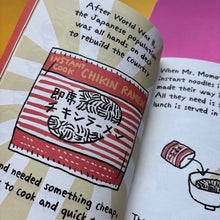 After World War II
the Japanese population
was all hands on deck
to rebuild the country.
INSTANT
COOK CHIKIN RAMEN
即席
チキンラーメン
and needed something cheap,
to cook and quick t
When Mr. Mom
instant noodles i
made their way i
All they need is
lunch is served in